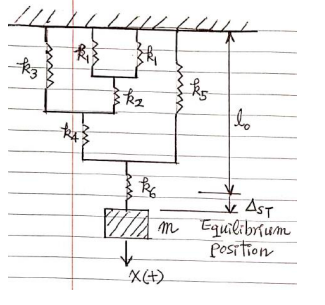 k₃
k₁
k₁
k₂
k₅
k₄
k₆
l₀
Δ_ST
m
Equilibrium
position
x(t)